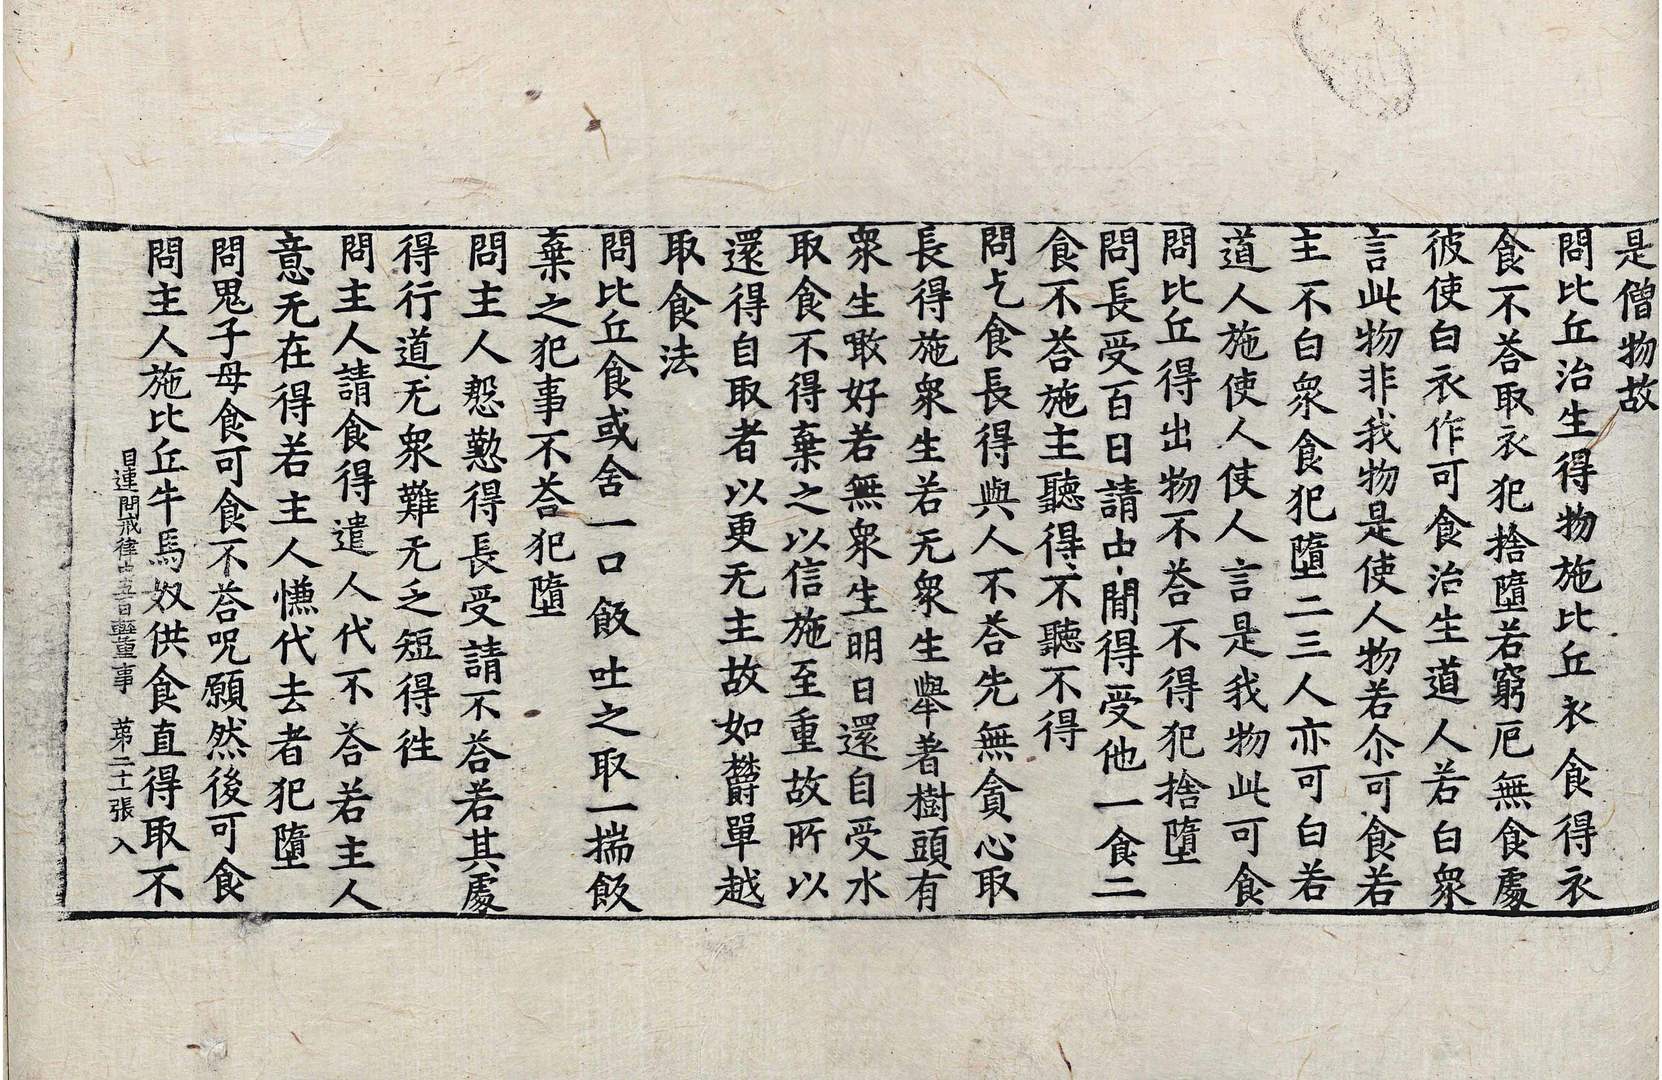 是僧物故
問比丘治生得物施比丘衣食得衣
食不荅取衣犯捨墮若窮厄無食處
彼使白衣作可食治生道人若白衆
言此物非我物是使人物若尒可食若
主不白衆食犯墮二三人亦可白若
道人施使人使人言是我物此可食
問比丘得出物不荅不得犯捨墮
問長受百日請中間得受他一食二
食不荅施主聽得不聽不得
問乞食長得與人不荅先無貪心取
長得施衆生若无衆生舉著樹頭有
衆生噉好若無衆生明日還自受水
取食不得棄之以信施至重故所以
還得自取者以更无主故如欝單越
取食法
問比丘食或舍一口飯吐之取一揣飯
棄之犯事不荅犯墮
問主人慇懃得長受請不荅若其處
得行道无衆難无乏短得徃
問主人請食得遣人代不荅若主人
意无在得若主人慊代去者犯墮
問鬼子母食可食不荅呪願然後可食
問主人施比丘牛馬奴供食直得取不
目連問戒律中五百輕重事 苐二十張 入